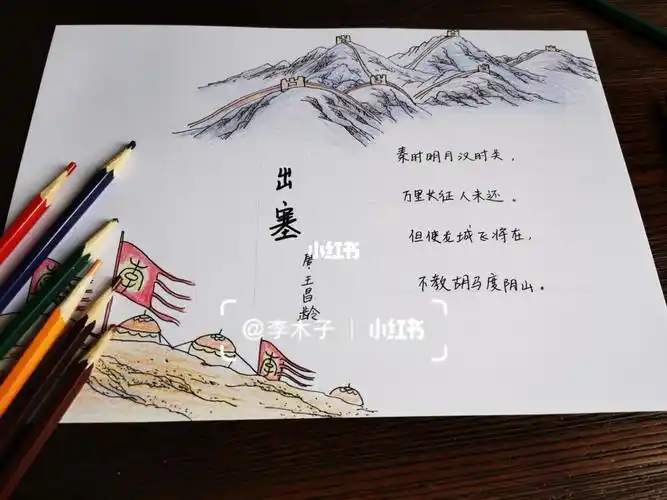 出塞
唐:王昌龄
秦时明月汉时关,
万里长征人未还。
但使龙城飞将在,
不教胡马度阴山。
小红书
@李木子 | 小红书